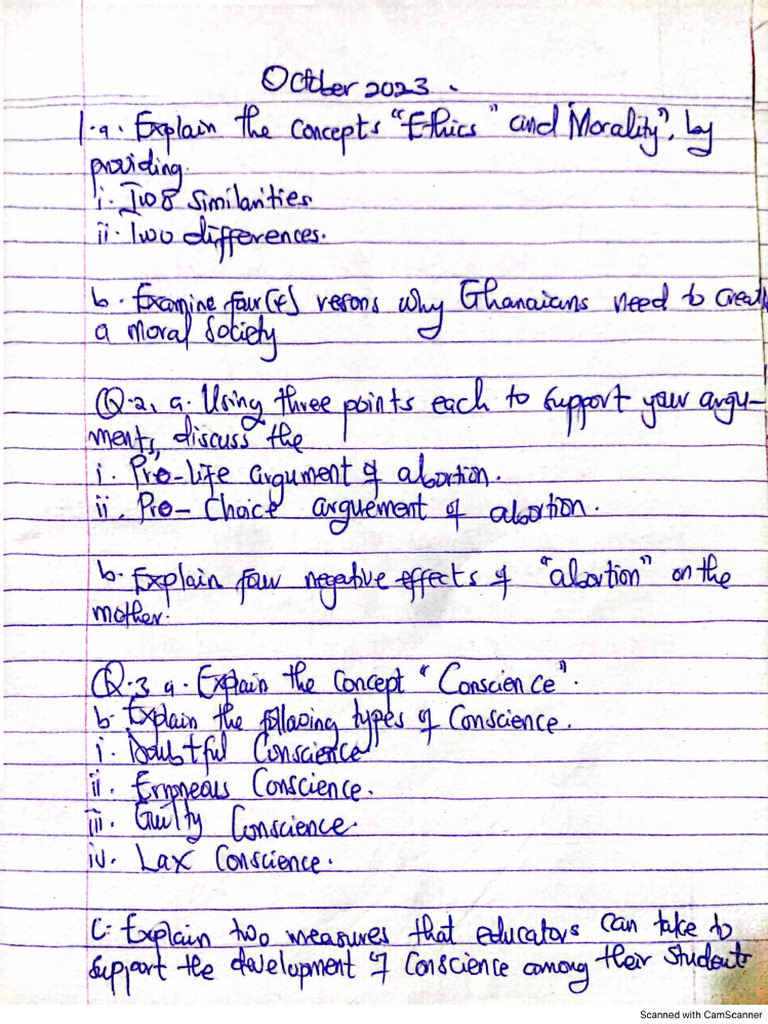 October 2023.
1.a. Explain the concepts "Ethics" and Morality", by
providing.
i. Two similarities
ii. Two differences.
b. Examine four(4) resons why Ghanaians need to create
a moral society
Q.2, a. Using three points each to support your argu-
ments, discuss the
i. Pro-life argument of abortion.
ii. Pro-Choice arguement of abortion.
b. Explain four negative effects of "abortion" on the
mother.
Q.3 a. Explain the concept "Conscience".
b. Explain the following types of Conscience.
i. Doubtful Conscience
ii. Erroneous Conscience.
iii. Guilty Conscience.
iv. Lax Conscience.
C. Explain two measures that educators can take to
support the development of Conscience among their students
Scanned with CamScanner